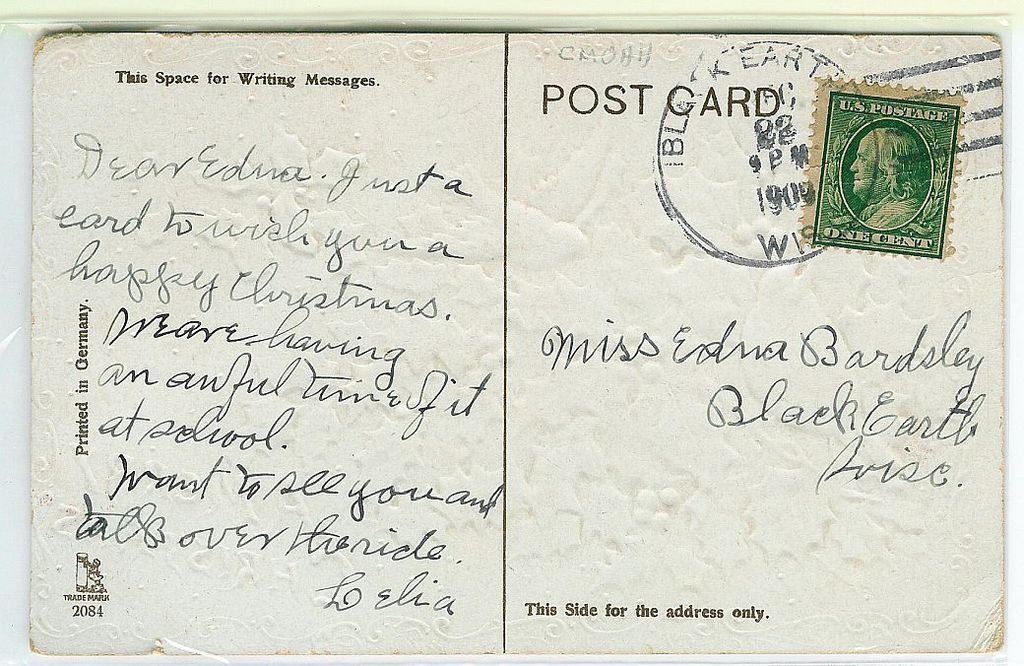 This Space for Writing Messages.
Dear Edna. Just a
card to wish you a
happy Christmas.
We are having
an awful time of it
at school.
Want to see you and
talk over the ride.
Lelia
Printed in Germany.
TRADE MARK
2084
POST CARD
BLACK EART
22
9 PM
1909
WIS
U.S. POSTAGE
ONE CENT
Miss Edna Bardsley
Black Earth
Wisc.
This Side for the address only.